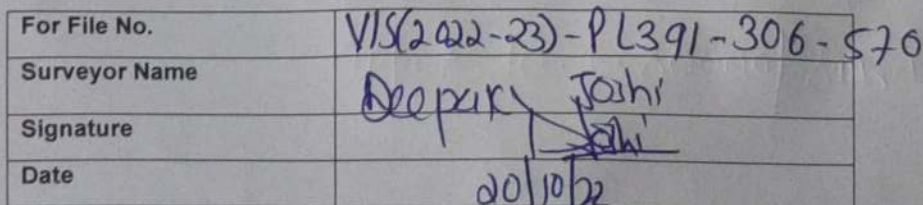 For File No. VIS(2022-23)-PL391-306-576
Surveyor Name Deepak Joshi
Signature Joshi
Date 20/10/22